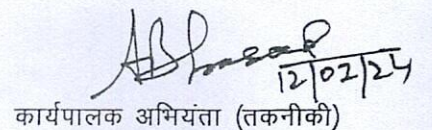 12/02/24
कार्यपालक अभियंता (तकनीकी)